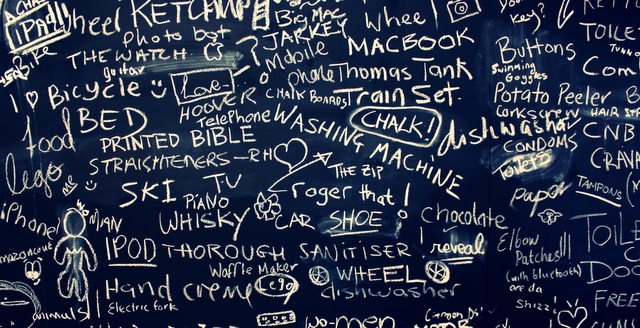 CHAI
IPAD!
Wheel
KETCHUP
Big Mac
Whee
you
Key?
TOILE
photo bot
JARKEY
Mobile
MACBOOK
THE WATCH
Buttons
Bike
guitar
Swimming
Goggles
Com
I Bicycle
Love
Phone
Thomas Tank
HOOVER
CHALK BOARDS
Train Set
Potato Peeler
B
food
BED
Telephone
CHALK!
Corkscrew
HAIR STR
WASHING MACHINE
dishwasher
CNB
PRINTED BIBLE
CONDOMS
Toilets
CRAVA
lego
STRAIGHTENERS - RH
me
THE ZIP
TAMPONS
SKI
TV
roger that!
paper
PIANO
iPhone!
MAN
WHISKY
CAR
SHOE
chocolate
TOILE
IPOD
THOROUGH SANITISER
I reveal
Elbow
Patches!!!
(with bluetooth)
are da
Shizz!
mazoncout
Waffle Maker
WHEEL
Hand creme
lego
dishwasher
DOO
Electric fork
animals
FREE
wo-men